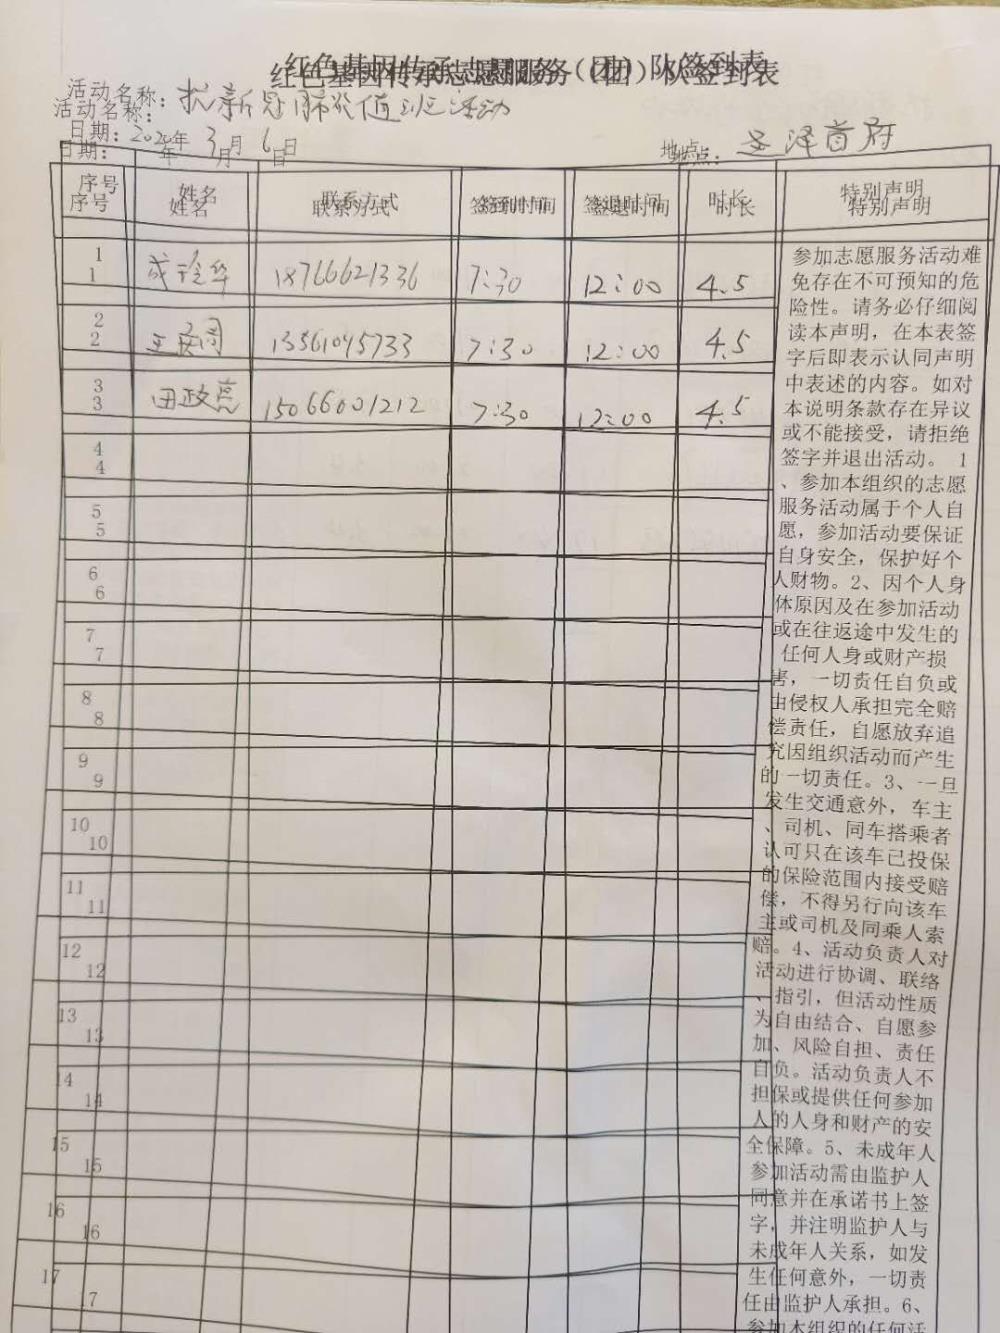 红色基因传承志愿服务（团）队签到表
活动名称：抗新冠肺炎值班活动
日期：2020年3月6日 地点：圣泽首府
序号 姓名 联系方式 签到时间 签退时间 时长 特别声明
1 18766621336 7:30 12:00 4.5
2 13561045733 7:30 12:00 4.5
3 田政亮 15066001212 7:30 12:00 4.5
4
5
6
7
8
9
10
11
12
13
14
15
16
17
参加志愿服务活动难
免存在不可预知的危
险性。请务必仔细阅
读本声明，在本表签
字后即表示认同声明
中表述的内容。如对
本说明条款存在异议
或不能接受，请拒绝
签字并退出活动。 1
、参加本组织的志愿
服务活动属于个人自
愿，参加活动要保证
自身安全，保护好个
人财物。2、因个人身
体原因及在参加活动
或在往返途中发生的
任何人身或财产损
害，一切责任自负或
由侵权人承担完全赔
偿责任，自愿放弃追
究因组织活动而产生
的一切责任。3、一旦
发生交通意外，车主
、司机、同车搭乘者
认可只在该车已投保
的保险范围内接受赔
偿，不得另行向该车
主或司机及同乘人索
赔。4、活动负责人对
活动进行协调、联络
、指引，但活动性质
为自由结合、自愿参
加、风险自担、责任
自负。活动负责人不
担保或提供任何参加
人的人身和财产的安
全保障。5、未成年人
参加活动需由监护人
同意并在承诺书上签
字，并注明监护人与
未成年人关系，如发
生任何意外，一切责
任由监护人承担。6、
参加本组织的任何活